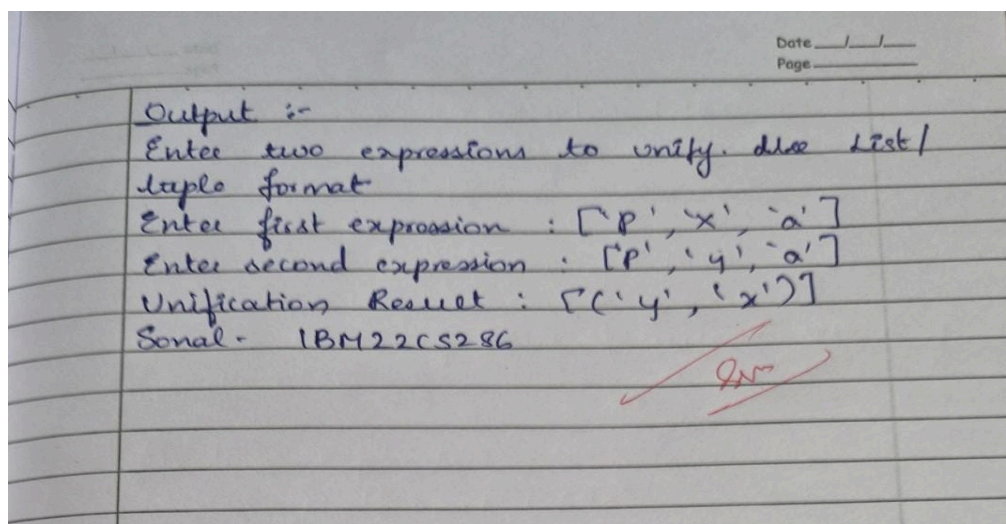 Date __/__/__
Page
Output :-
Enter two expressions to unify. Use List/
tuple format
Enter first expression : ['P', 'x', 'a']
Enter second expression : ['P', 'y', 'a']
Unification Result : [('y', 'x')]
Sonal - 1BM22CS286